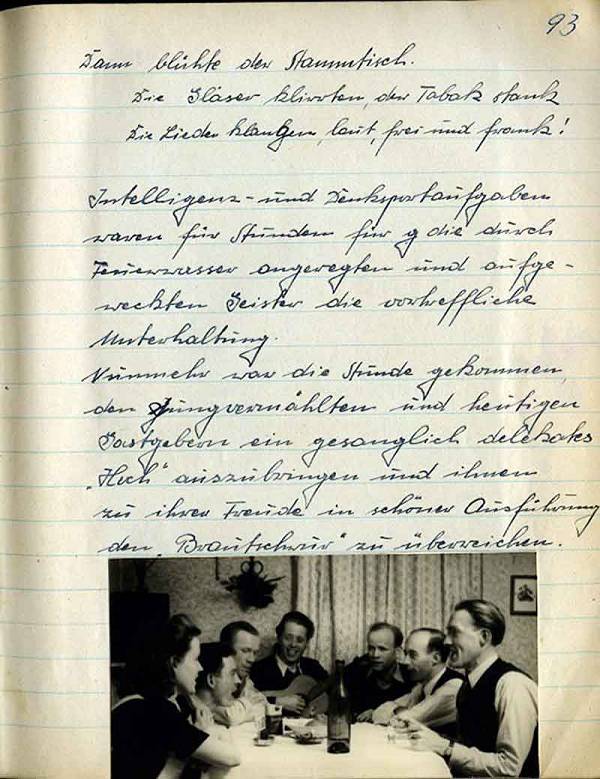 93
Dann blühte der Stammtisch.
Die Gläser klirrten, der Tabak stank
Die Lieder klangen, laut, frei und frank!
Intelligenz- und Denksportaufgaben
waren für Stunden für g die durch
Feuerwasser angeregten und aufge-
weckten Geister die vortreffliche
Unterhaltung.
Nunmehr war die Stunde gekommen,
den Jungvermählten und heutigen
Gastgebern ein gesanglich delikates
„Hoch" auszubringen und ihnen
zu ihrer Freude in schöner Ausführung
den „Brautschwur" zu überreichen.